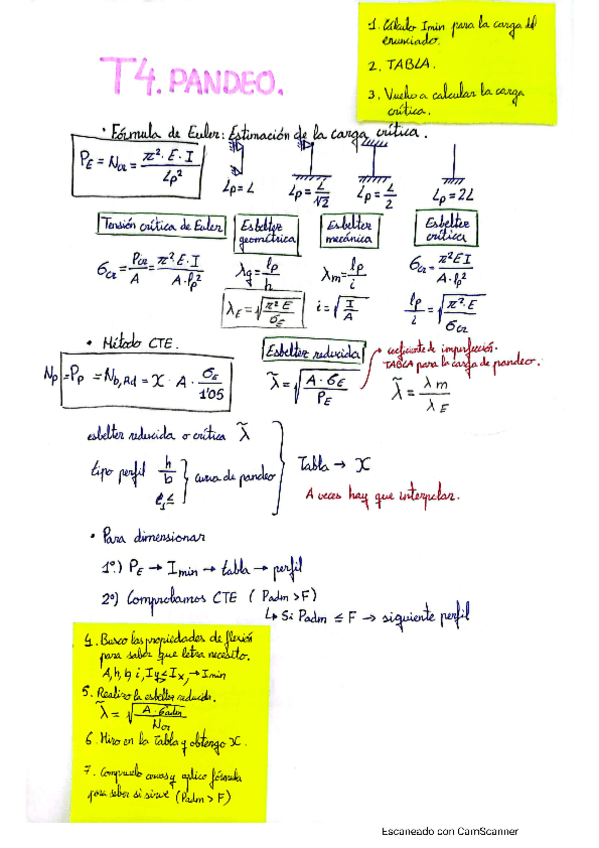 T4. PANDEO.
1. Cálculo Imin para la carga del
enunciado.
2. TABLA.
3. Vuelvo a calcular la carga
crítica.
• Fórmula de Euler: Estimación de la carga crítica.
PE = Ncr = π²·E·I / Lp²
Lp = L
Lp = L/√2
Lp = L/2
Lp = 2L
Tensión crítica de Euler
σcr = Pcr/A = π²·E·I / A·lp²
Esbeltez
geométrica
λg = lp/h
λE = √(π²E/σE)
Esbeltez
mecánica
λm = lp/i
i = √(I/A)
Esbeltez
crítica
σcr = π²EI / A·lp²
lp/i = √(π²·E/σcr)
• Método CTE.
Np = Pp = Nb,Rd = χ · A · σE/1'05
Esbeltez reducida
λ̃ = √(A·σE/PE)
coeficiente de imperfección.
TABLA para la carga de pandeo.
λ̃ = λm/λE
esbeltez reducida o crítica λ̃
tipo perfil h/b } curva de pandeo
e1≤
Tabla → χ
A veces hay que interpolar.
• Para dimensionar
1º) PE → Imin → tabla → perfil
2º) Comprobamos CTE ( Padm > F)
↳ Si Padm ≤ F → siguiente perfil
4. Busco las propiedades de flexión
para saber que letra necesito.
A, h, b, i, Iy ≤ Ix, → Imin
5. Realizo la esbeltez reducida.
λ̃ = √(A·σadm/Ncr)
6. Miro en la Tabla y obtengo χ.
7. Compruebo curvas y aplico fórmula
para saber si sirve (Padm > F)
Escaneado con CamScanner